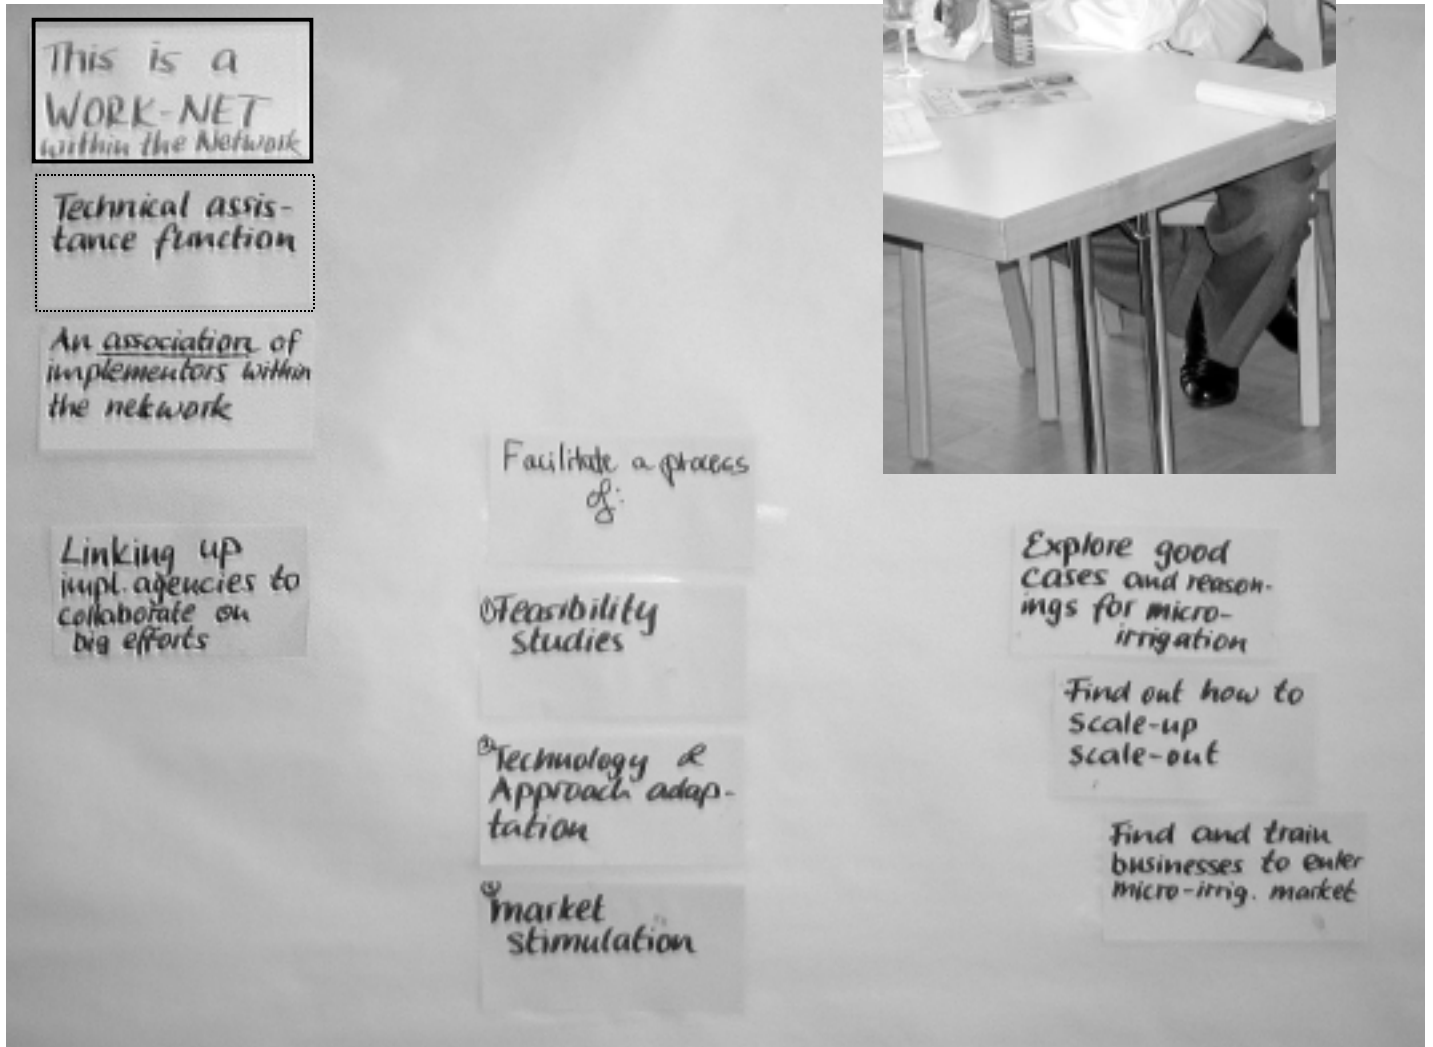 This is a
WORK-NET
within the Network
Technical assis-
tance function
An association of
implementors within
the network
Linking up
impl. agencies to
collaborate on
big efforts
Facilitate a process
of:
① Feasibility
studies
② Technology &
Approach adap-
tation
③ market
stimulation
Explore good
cases and reason-
ings for micro-
irrigation
Find out how to
scale-up
scale-out
Find and train
businesses to enter
micro-irrig. market